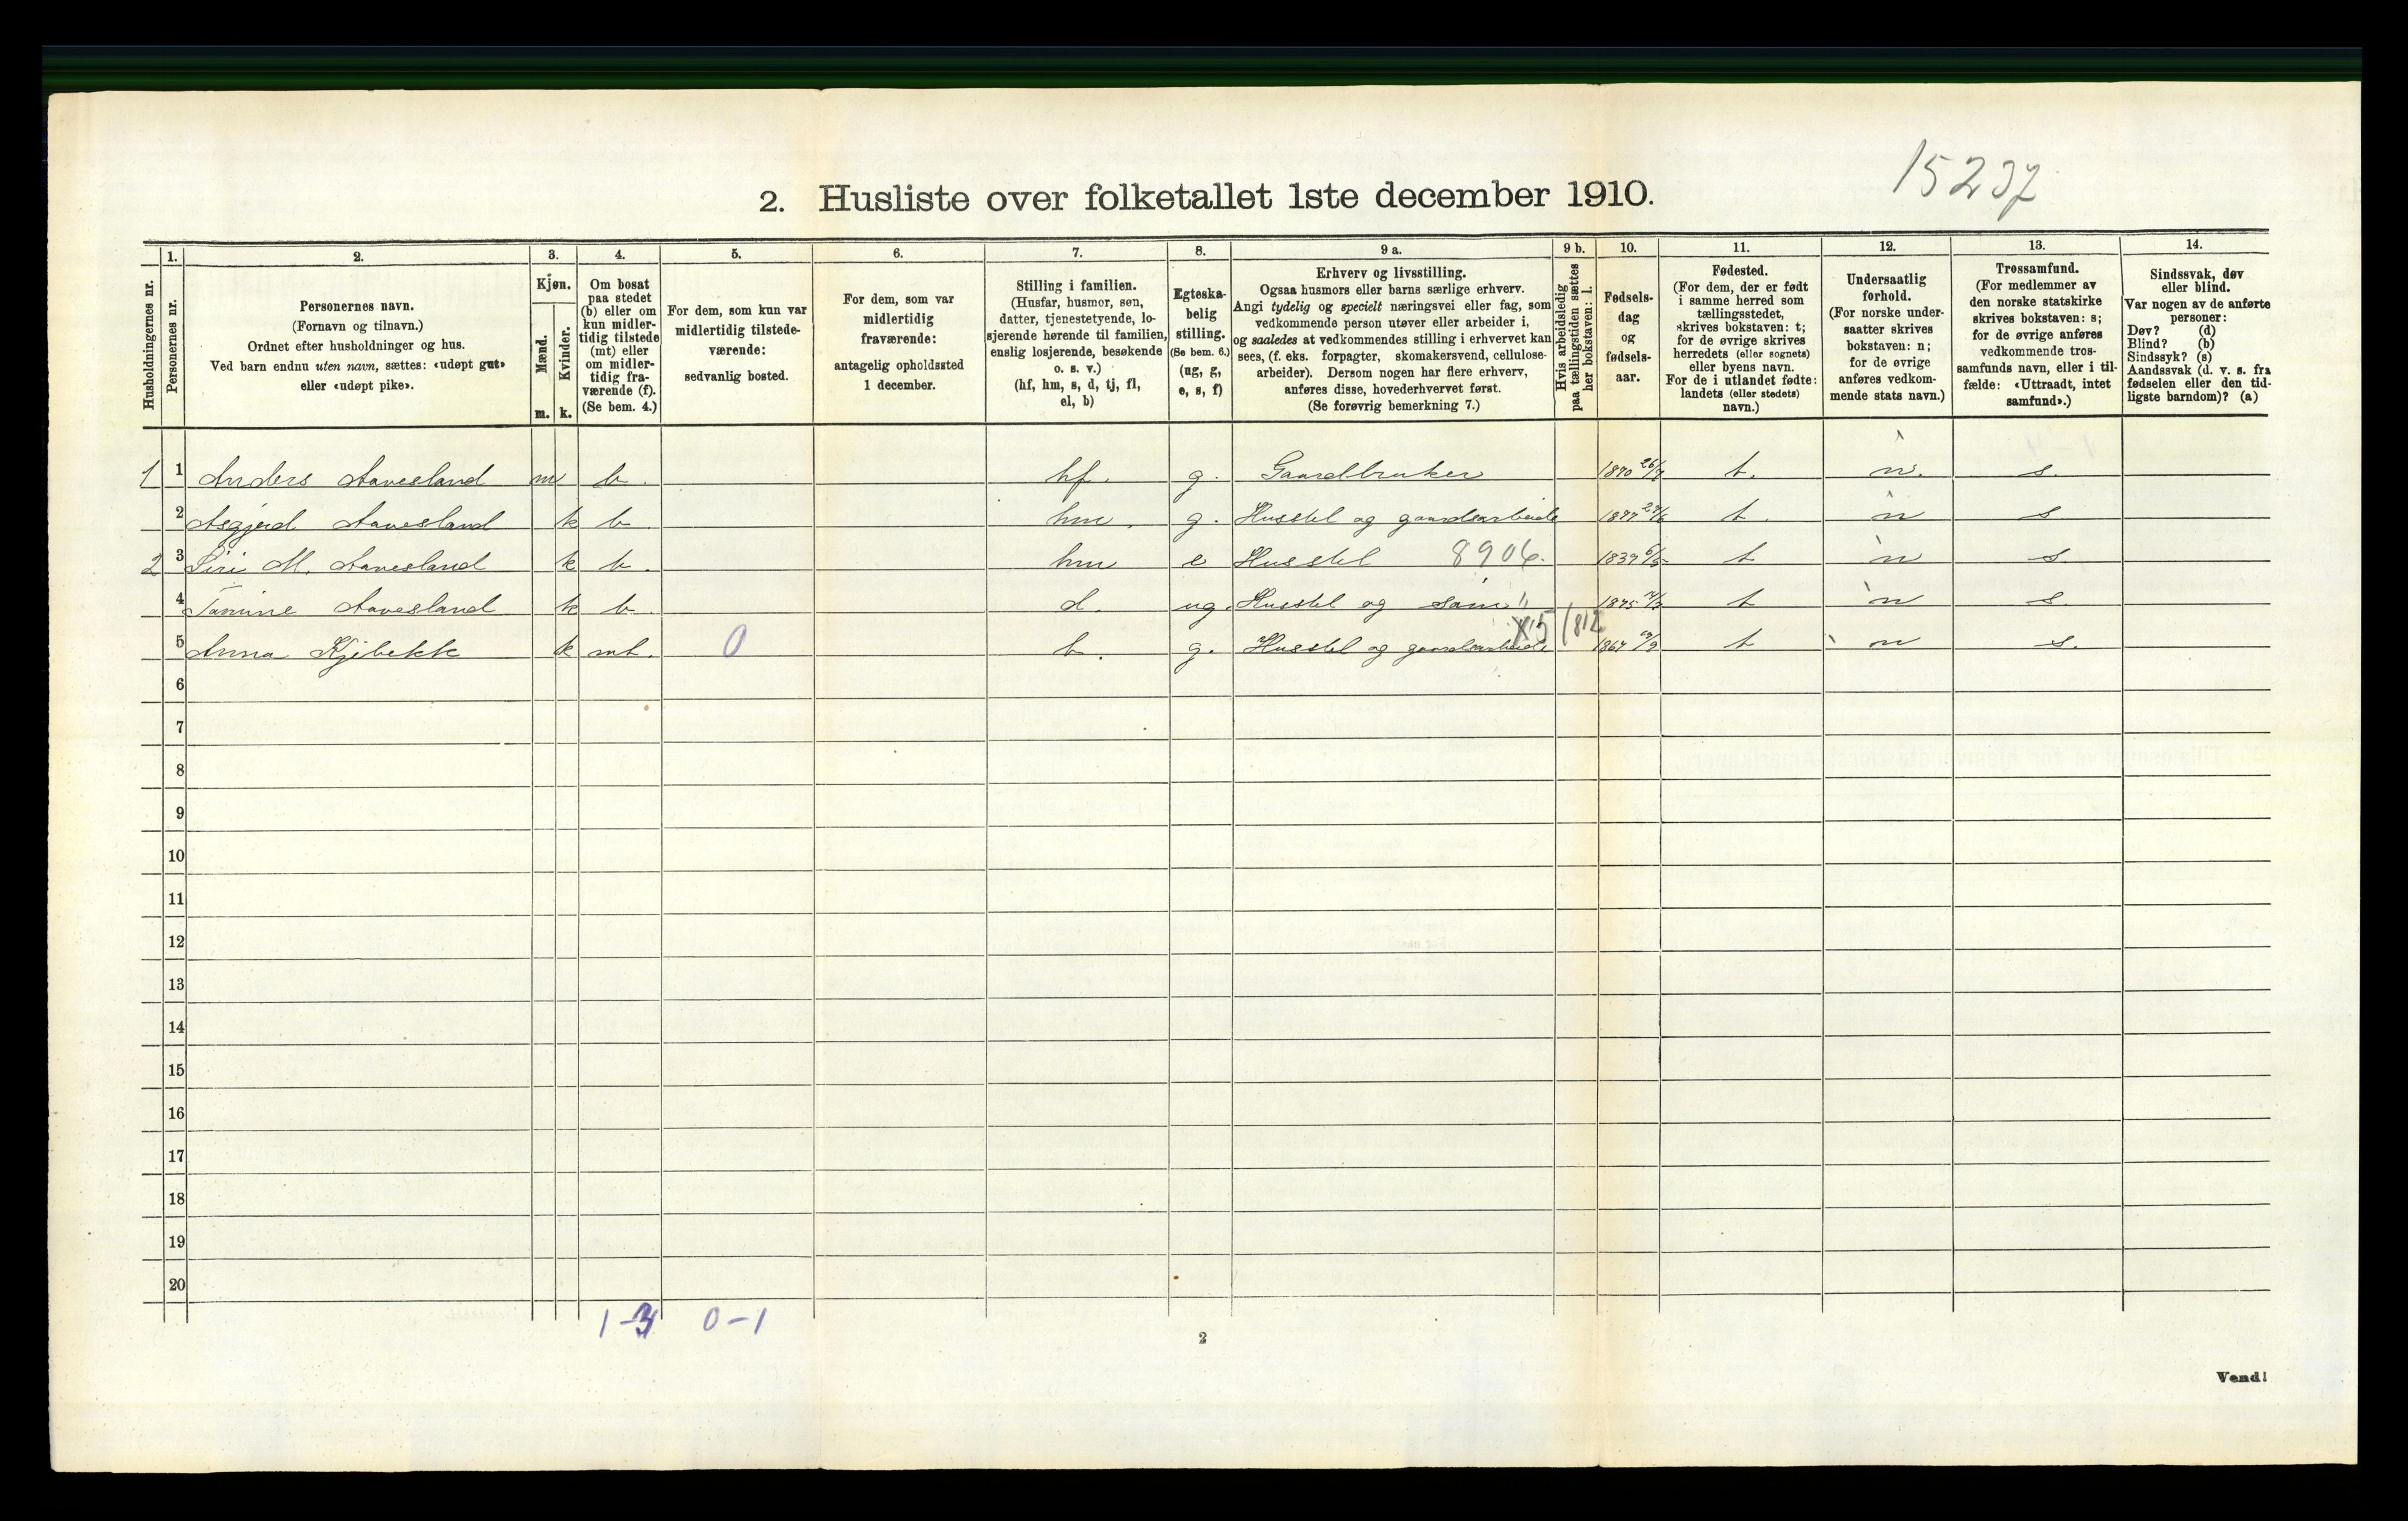 15237
2. Husliste over folketallet 1ste december 1910.
Husholdningernes nr.
1.
Personernes nr.
2.
Personernes navn.
(Fornavn og tilnavn.)
Ordnet efter husholdninger og hus.
Ved barn endnu uten navn, sættes: «udøpt gut»
eller «udøpt pike».
3.
Kjøn.
Mænd.
Kvinder.
m. k.
4.
Om bosat
paa stedet
(b) eller om
kun midler-
tidig tilstede
(mt) eller
om midler-
tidig fra-
værende (f).
(Se bem. 4.)
5.
For dem, som kun var
midlertidig tilstede-
værende:
sedvanlig bosted.
6.
For dem, som var
midlertidig
fraværende:
antagelig opholdssted
1 december.
7.
Stilling i familien.
(Husfar, husmor, søn,
datter, tjenestetyende, lo-
sjerende hørende til familien,
enslig losjerende, besøkende
o. s. v.)
(hf, hm, s, d, tj, fl,
el, b)
8.
Egteska-
belig
stilling.
(Se bem. 6.)
(ug, g,
e, s, f)
9 a.
Erhverv og livsstilling.
Ogsaa husmors eller barns særlige erhverv.
Angi tydelig og specielt næringsvei eller fag, som
vedkommende person utøver eller arbeider i,
og saaledes at vedkommendes stilling i erhvervet kan
sees, (f. eks. forpagter, skomakersvend, cellulose-
arbeider). Dersom nogen har flere erhverv,
anføres disse, hovederhvervet først.
(Se forøvrig bemerkning 7.)
9 b.
Hvis arbeidsledig
paa tællingstiden sættes
her bokstaven: l.
10.
Fødsels-
dag
og
fødsels-
aar.
11.
Fødested.
(For dem, der er født
i samme herred som
tællingsstedet,
skrives bokstaven: t;
for de øvrige skrives
herredets (eller sognets)
eller byens navn.
For de i utlandet fødte:
landets (eller stedets)
navn.)
12.
Undersaatlig
forhold.
(For norske under-
saatter skrives
bokstaven: n;
for de øvrige
anføres vedkom-
mende stats navn.)
13.
Trossamfund.
(For medlemmer av
den norske statskirke
skrives bokstaven: s;
for de øvrige anføres
vedkommende tros-
samfunds navn, eller i til-
fælde: «Uttraadt, intet
samfund».)
14.
Sindssvak, døv
eller blind.
Var nogen av de anførte
personer:
Døv? (d)
Blind? (b)
Sindssyk? (s)
Aandssvak (d. v. s. fra
fødselen eller den tid-
ligste barndom)? (a)
1 1 Anders Aavesland m b. hf. g. Gaardbruker 1870 t. n. s.
2 Asgjerd Aavesland k b. hm. g. Husstel og gaardsarbeide 1877 t. n s
2 3 Siri M. Aavesland k b. hm e Husstel 8906. 1839 t n s.
4 Tomine Aavesland k b. d. ug. Husstel og 1875 t n s.
5 Anna Kjebekk k mt. 0 b. g. Husstel og gaardsarbeide 1867 t n s.
6
7
8
9
10
11
12
13
14
15
16
17
18
19
20
1-3 0-1
2
Vend!